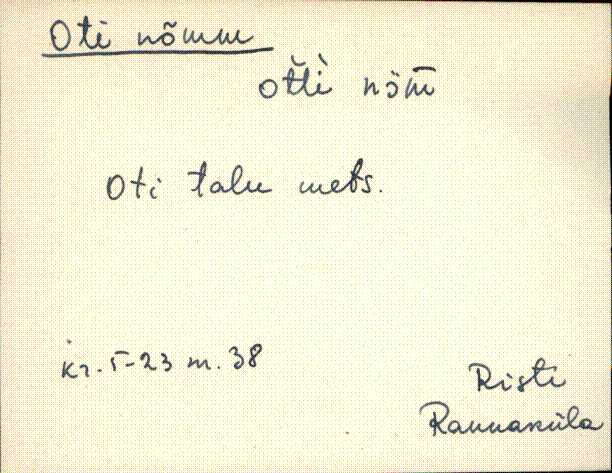 Oti nõmm
ot̆tì nöm̄
Oti talu mets.
kr. 5-23 m. 38
Risti
Rannaküla